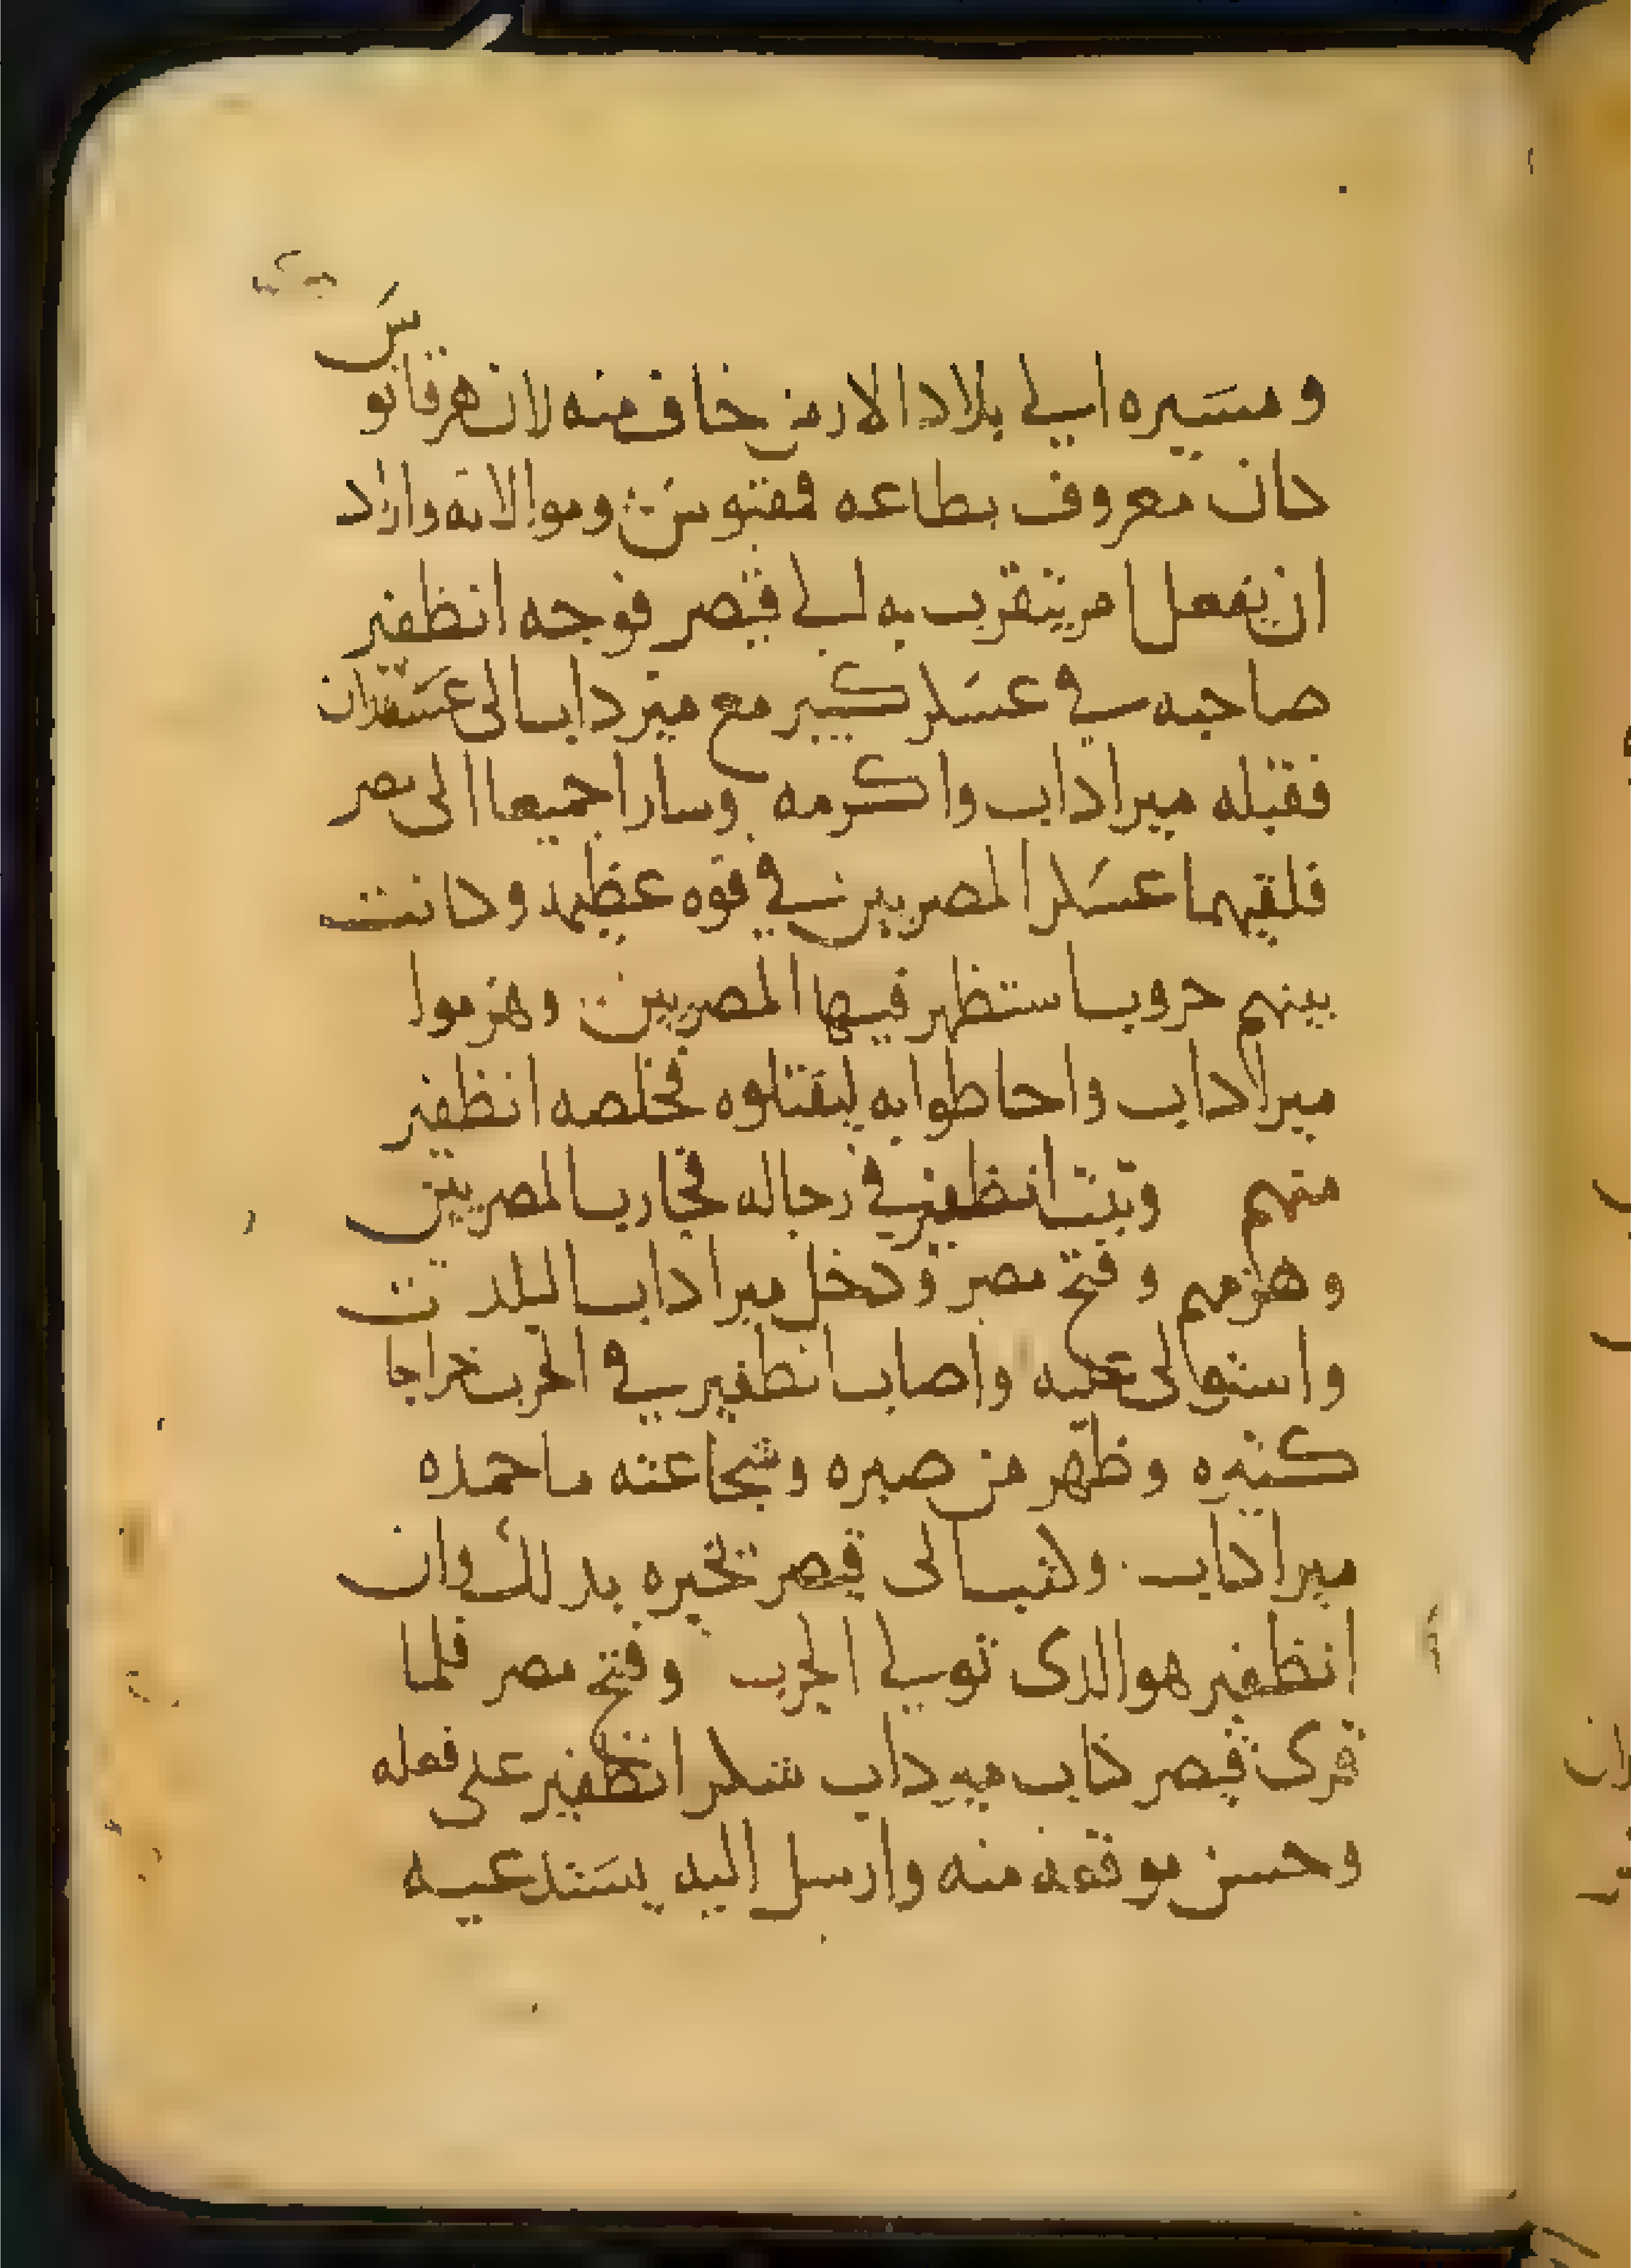 ومسيره الي بلاد الارمن خاف منه لان هرقانوس
كان معروف بطاعه ففنوس وموالاته واراد
ان يفعل امر يتقرب به الى قيصر فوجه انظفير
صاحبه في عسكر كبير مع ميرداب الى عسقلان
فقبله ميراداب واكرمه وسارا جميعا الى مصر
فلقيهما عسكر المصريين في قوه عظيمه وكانت
بينهم حروب استظهر فيها المصريين وهزموا
ميراداب واحاطوا به ليقتلوه فخلصه انظفير
منهم وثبت انظفير في رجاله فحارب المصريين
وهزمهم وفتح مصر ودخل ميراداب البلد
واستولى عليه واصاب انظفير في الحرب جراحا
كثيره وظهر من صبره وشجاعته ما حمده
ميراداب وكتب الى قيصر يخبره بدلك وان
انظفير هو الدى تولي الحرب وفتح مصر فلما
قرى قيصر كتاب ميرداب شكر انظفير على فعله
وحسن موقعه منه وارسل اليه يستدعيه